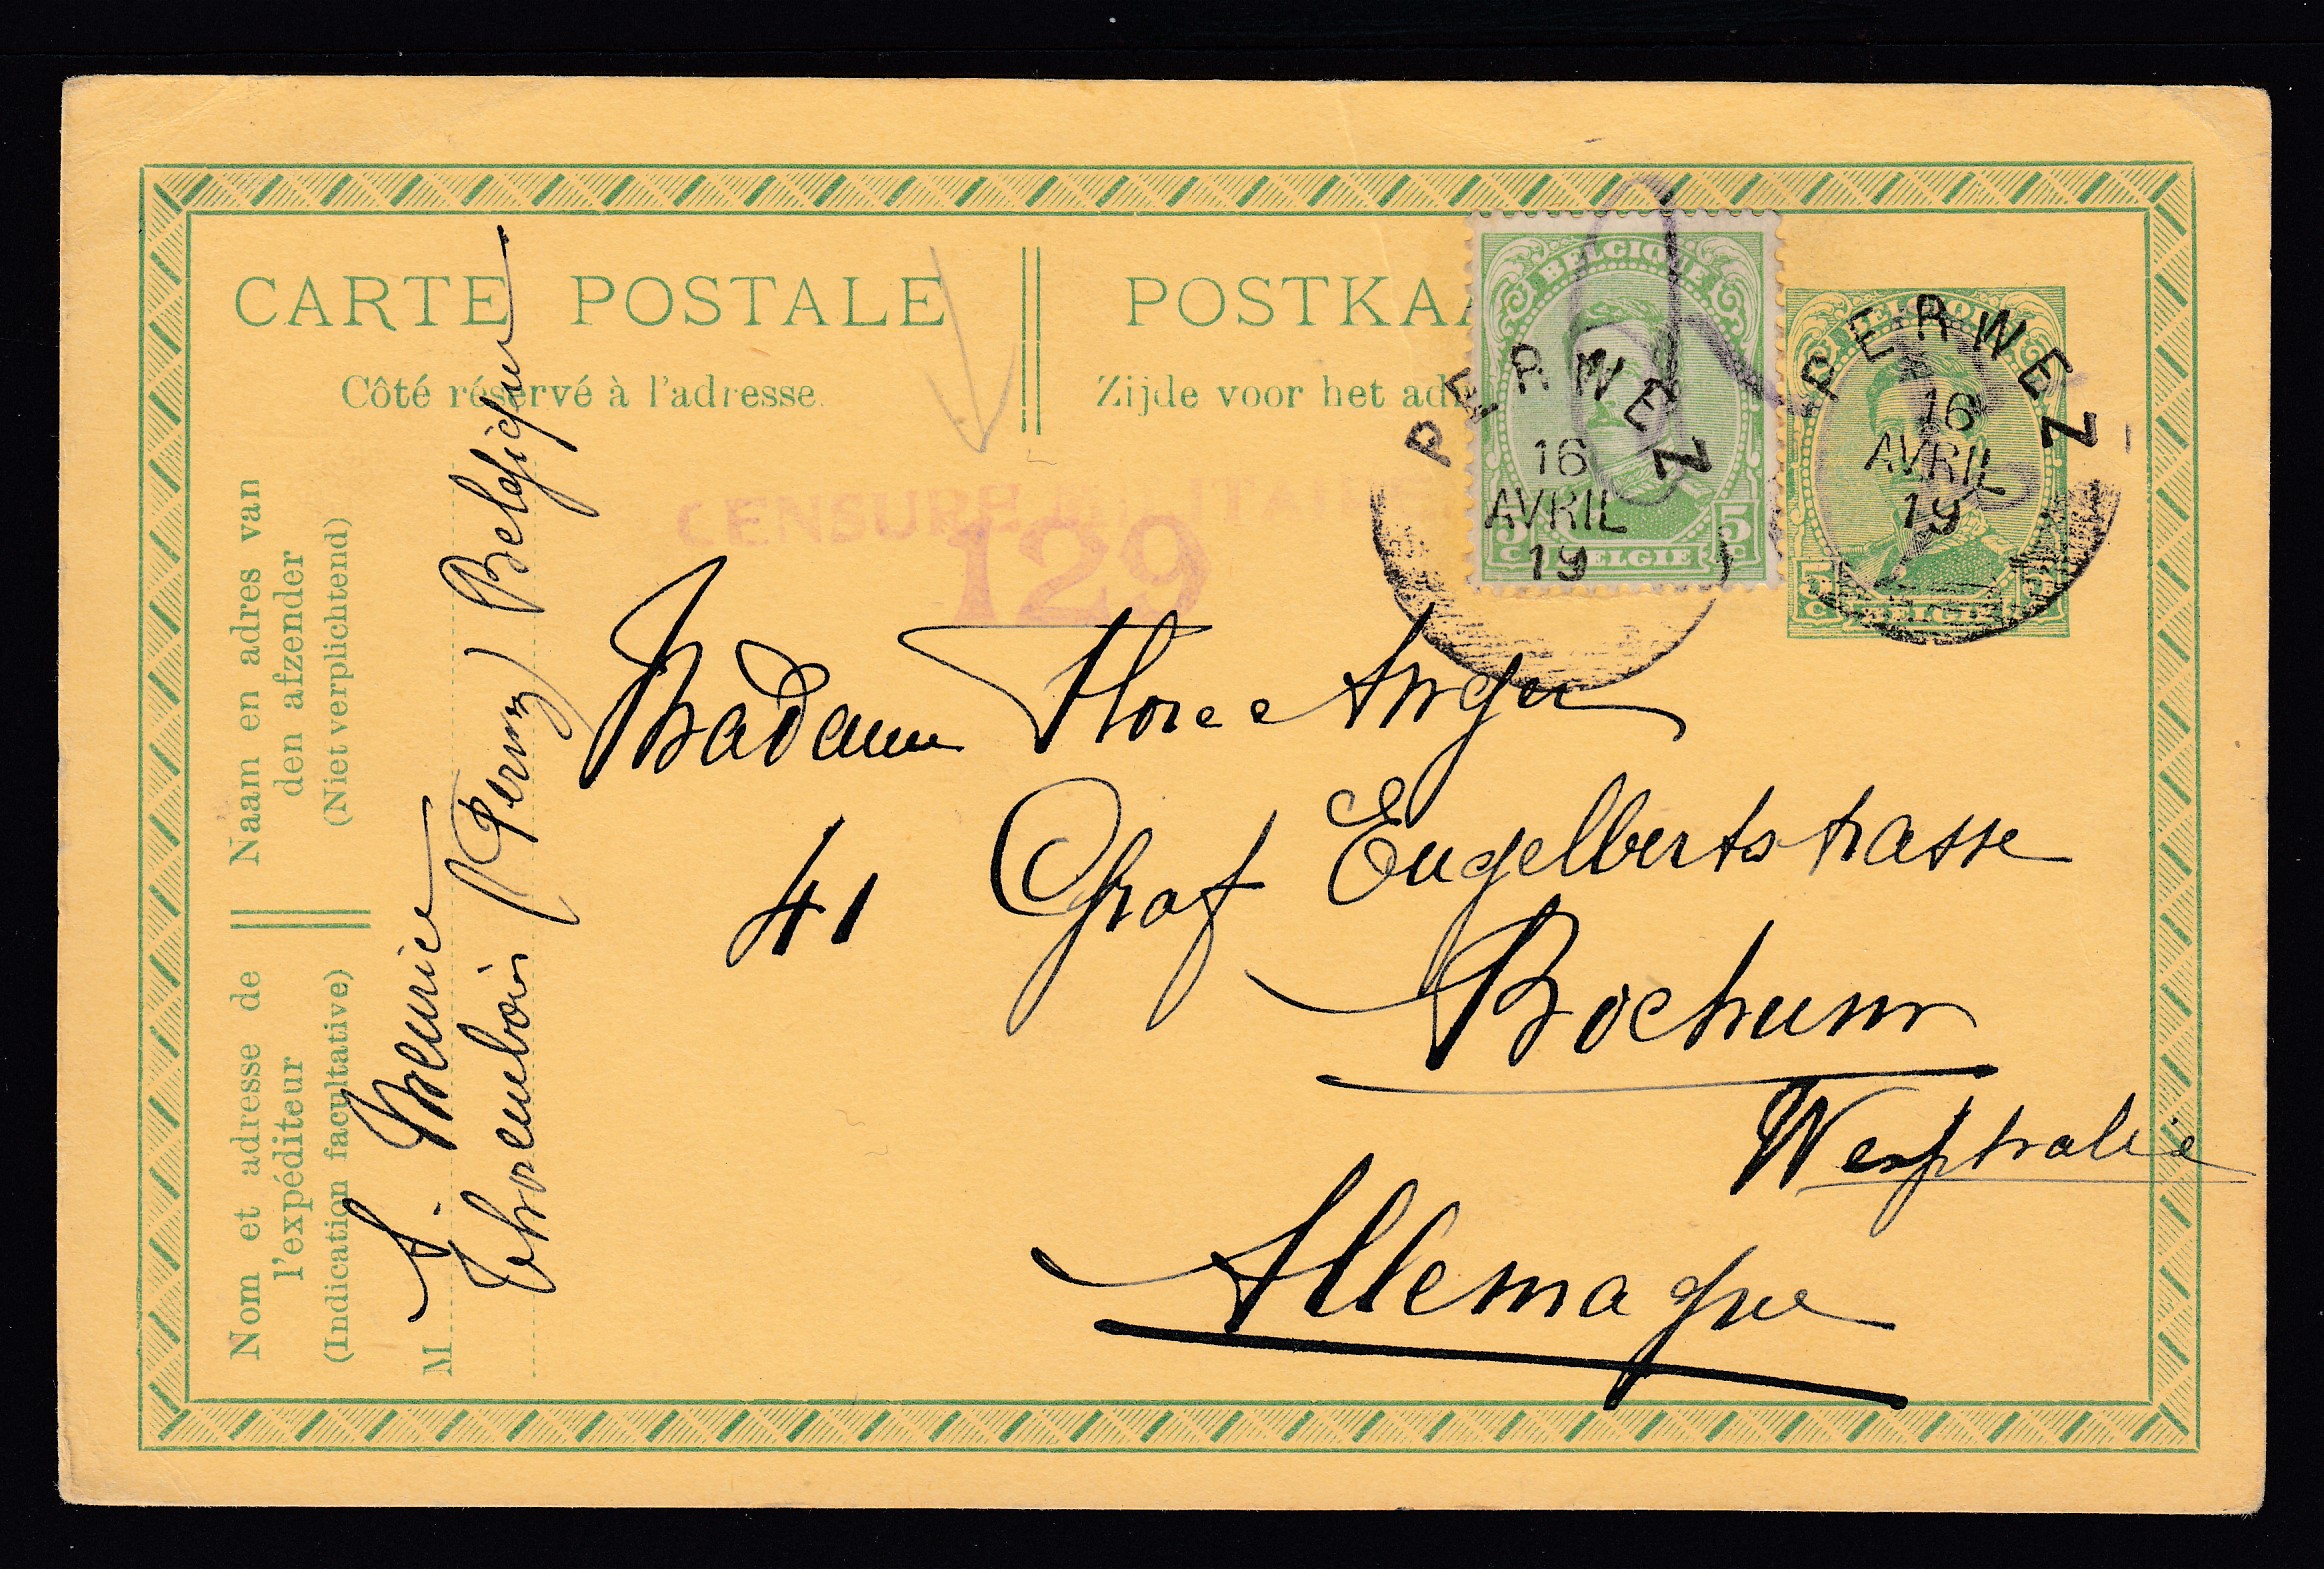 CARTE POSTALE
Côté réservé à l'adresse.
POSTKAA
Zijde voor het ad
BELGIQUE
5c BELGIE 5c
PERWEZ
16
AVRIL
19
PERWEZ
16
AVRIL
19
CENSURE MILITAIRE
129
Madame Flore Anger
41 Graf Engelbertstrasse
Bochum
Westphalie
Allemagne
Naam en adres van
den afzender
(Niet verplichtend)
Nom et adresse de
l'expéditeur
(Indication facultative)
M
S. Meurice
Thorembais (Perwez) Belgique